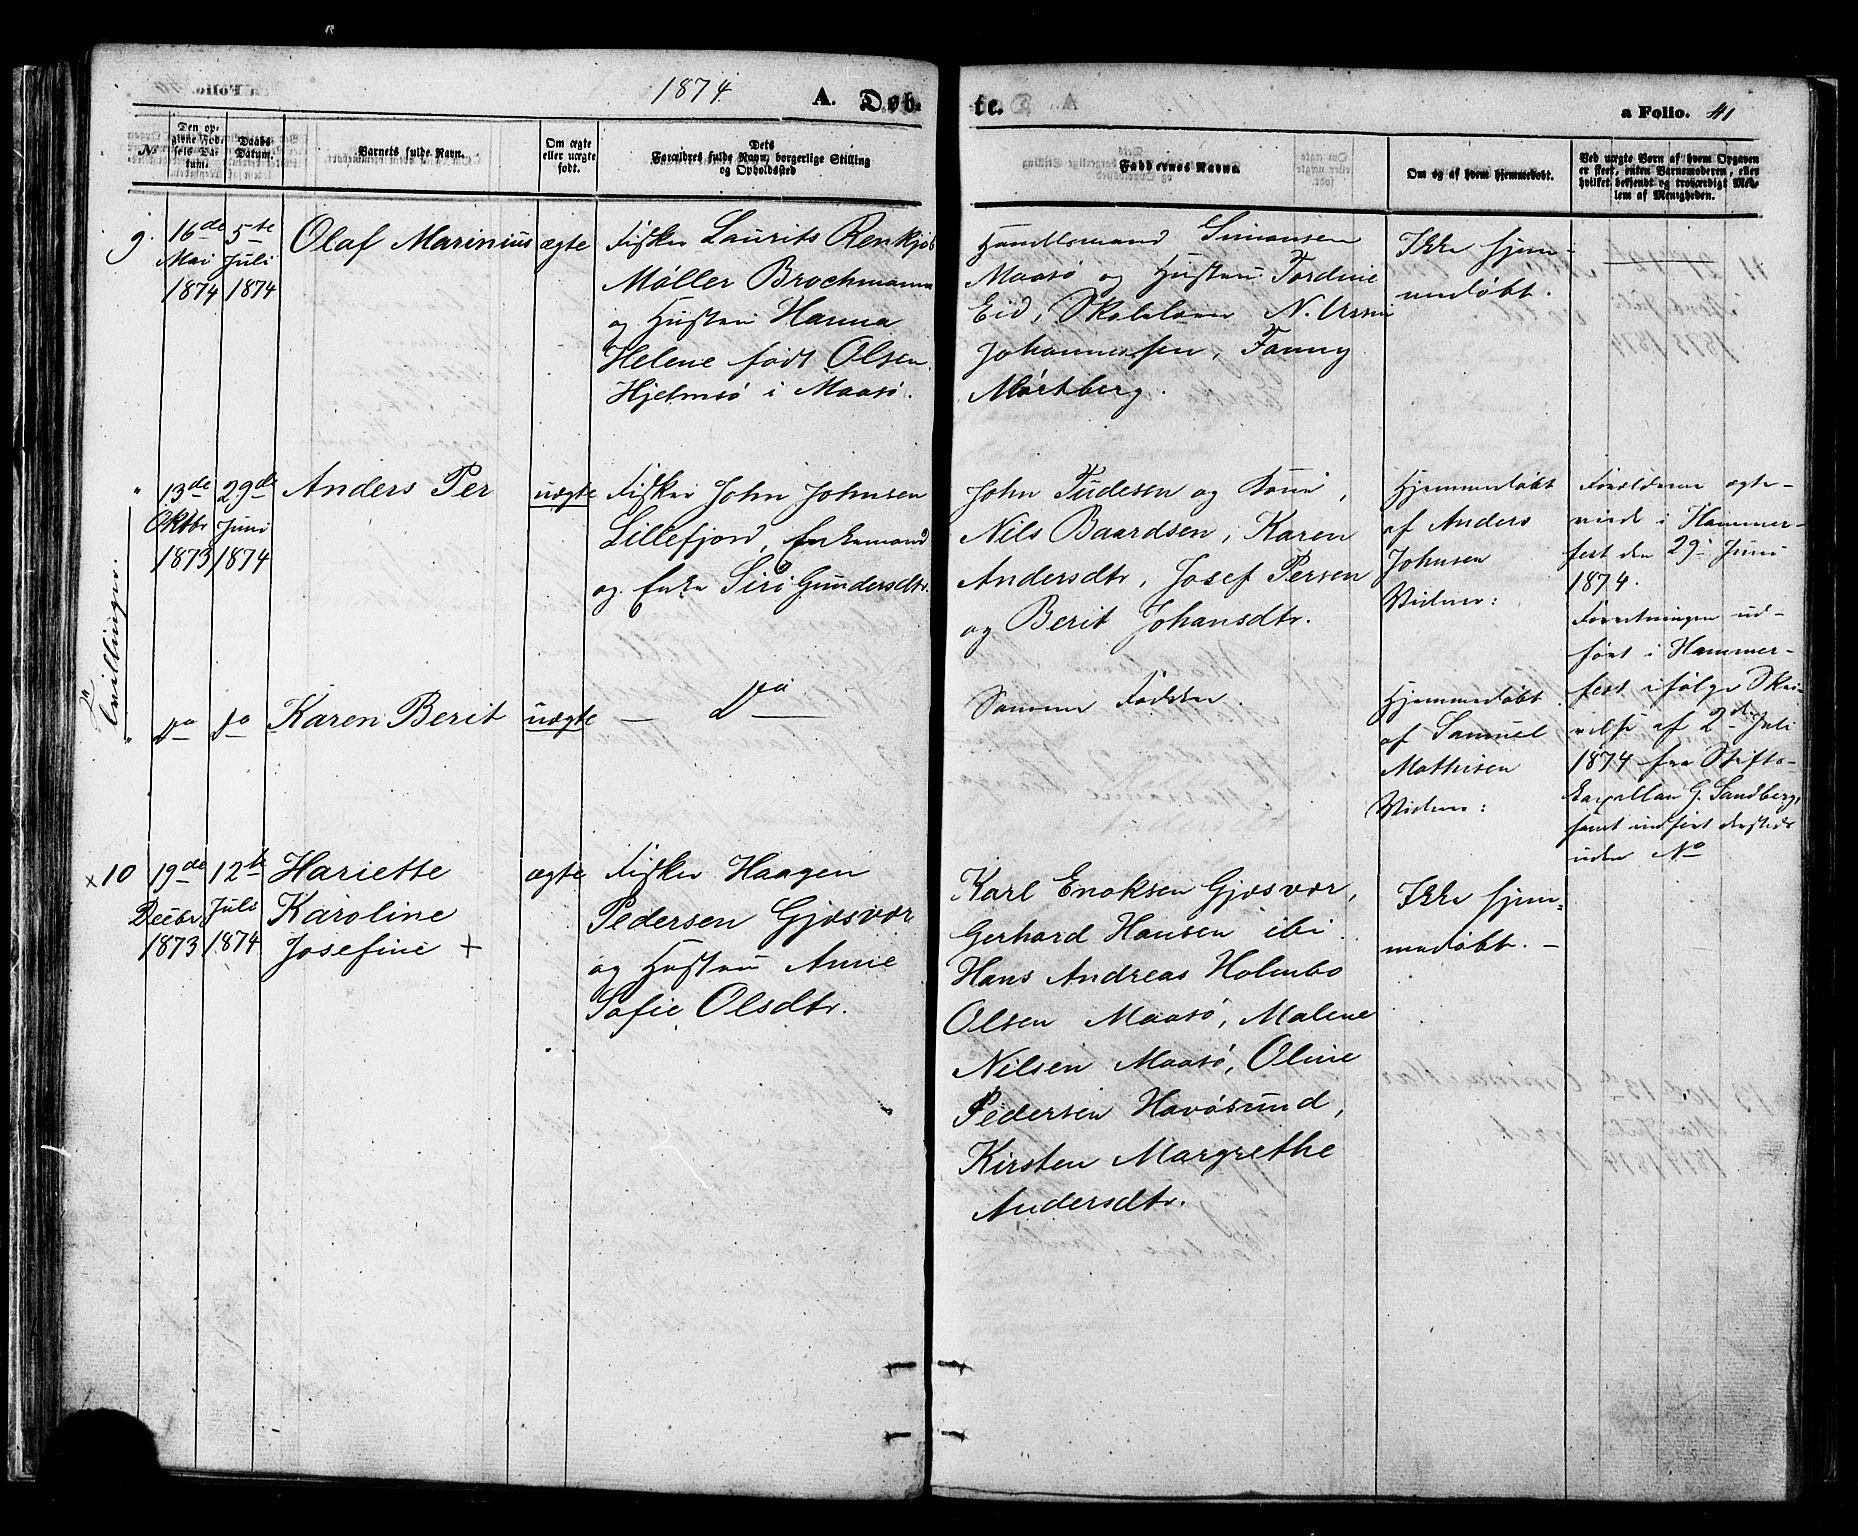 1874
A. Døb-
te.
a Folio. 41
No
Den op-
givne Fød-
sels Da-
tum.
Daabs
Datum.
Barnets fulde Navn.
Om ægte
eller uægte
født.
Dets
Forældres fulde Navn, borgerlige Stilling
og Opholdssted
Faddernes Navne.
Om og af hvem hjemmedøbt.
Ved uægte Børn af hvem Opgaven
er skeet, enten Barnemoderen, eller
hvilket bekjendt og troværdigt Med-
lem af Menigheden.
9.
16de
Mai
1874
5te
Juli
1874
Olaf Marinius
ægte
Fisker Laurits Renkjob
Møller Brochmann
og Hustru Hanna
Helene født Olsen.
Hjelmsø i Maasø.
Handelsmand Simonsen
Maasø og Hustru Tordine
Eid, Skolelærer N. Ursin
Johannessen, Fanny
Mørkberg.
Ikke hjem-
medøbt.
Tvillinger.
"
13de
Oktbr
1873
29de
Juni
1874
Anders Per
uægte
Fisker John Johnsen
Lillefjord, Enkemand
og Enke Siri Gundersdtr.
John Tudesen og Kone,
Nils Baardsen, Karen
Andersdtr, Josef Persen
og Berit Johansdtr.
Hjemmedøbt
af Anders
Johnsen
Forældrene ægte-
viede i Hammer-
fest den 29 Juni
1874.
Forretningen ud-
ført i Hammer-
fest ifølge Skri-
velse af 2den Juli
1874 fra Stifts-
kapellan G. Sandberg,
samt indført dersteds
under No
"
Do
Do
Karen Berit
uægte
— Do —
Samme Faddere.
Hjemmedøbt
af Samuel
Mathisen
x 10
19de
Decbr
1873
12te
Juli
1874
Hariette
Karoline
Josefine +
ægte
Fisker Haagen
Pedersen Gjæsvær
og Hustru Anne
Sofie Olsdtr.
Karl Enoksen Gjæsvær,
Gerhard Hansen ibi.
Hans Andreas Holmbo
Olsen Maasø, Malene
Nilsen Maasø, Oline
Pedersen Havøsund,
Kirsten Margrethe
Andersdtr.
Ikke hjem-
medøbt. —